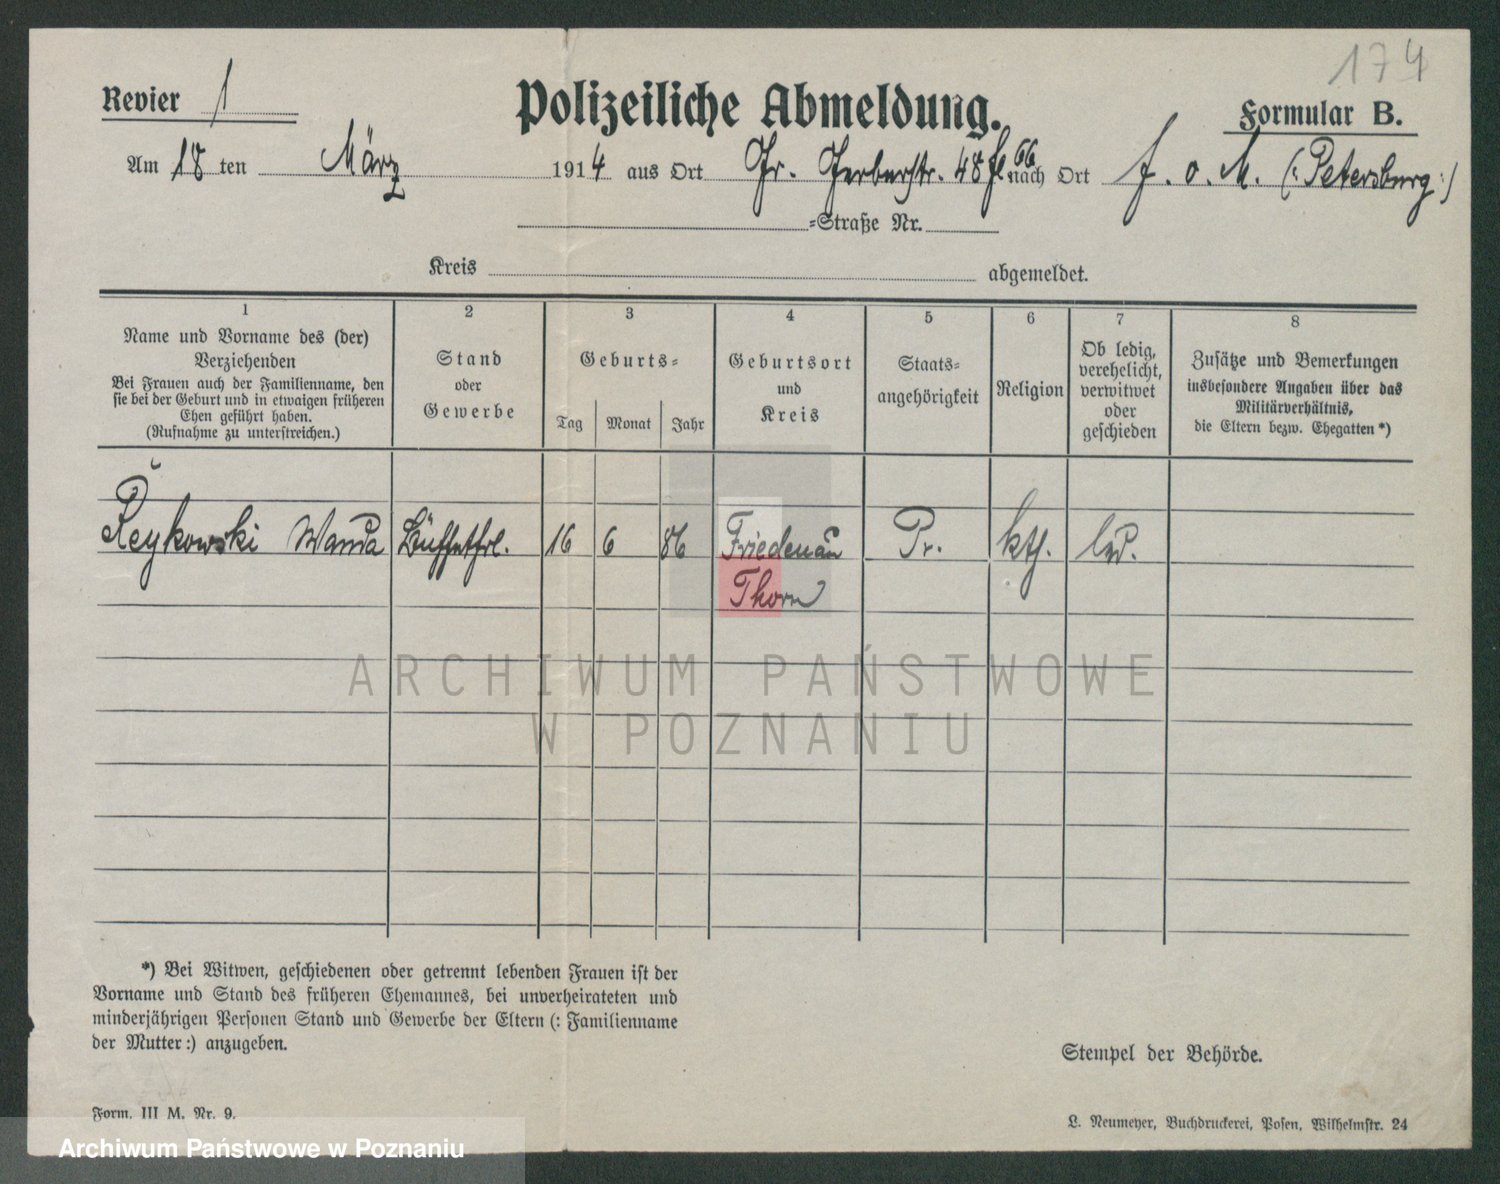 174
Revier 1
Polizeiliche Abmeldung.
Formular B.
Am 18 ten März 1914 aus Ort Gr. Gerberstr. 48 nach Ort (: Petersburg :)
=Straße Nr.
Kreis abgemeldet.
1 2 3 4 5 6 7 8
Name und Vorname des (der)
Verziehenden
Bei Frauen auch der Familienname, den
sie bei der Geburt und in etwaigen früheren
Ehen geführt haben.
(Rufnahme zu unterstreichen.)
Stand
oder
Gewerbe
Geburts=
Tag Monat Jahr
Geburtsort
und
Kreis
Staats=
angehörigkeit
Religion
Ob ledig,
verehelicht,
verwitwet
oder
geschieden
Zusätze und Bemerkungen
insbesondere Angaben über das
Militärverhältnis,
die Eltern bezw. Ehegatten *)
Reykowski Wanda Büffetfrl. 16 6 86 Friedenau Pr. kth. led.
Thorn
ARCHIWUM PAŃSTWOWE
W POZNANIU
*) Bei Witwen, geschiedenen oder getrennt lebenden Frauen ist der
Vorname und Stand des früheren Ehemannes, bei unverheirateten und
minderjährigen Personen Stand und Gewerbe der Eltern (: Familienname
der Mutter :) anzugeben.
Stempel der Behörde.
Form. III M. Nr. 9.
L. Neumeyer, Buchdruckerei, Posen, Wilhelmstr. 24
Archiwum Państwowe w Poznaniu